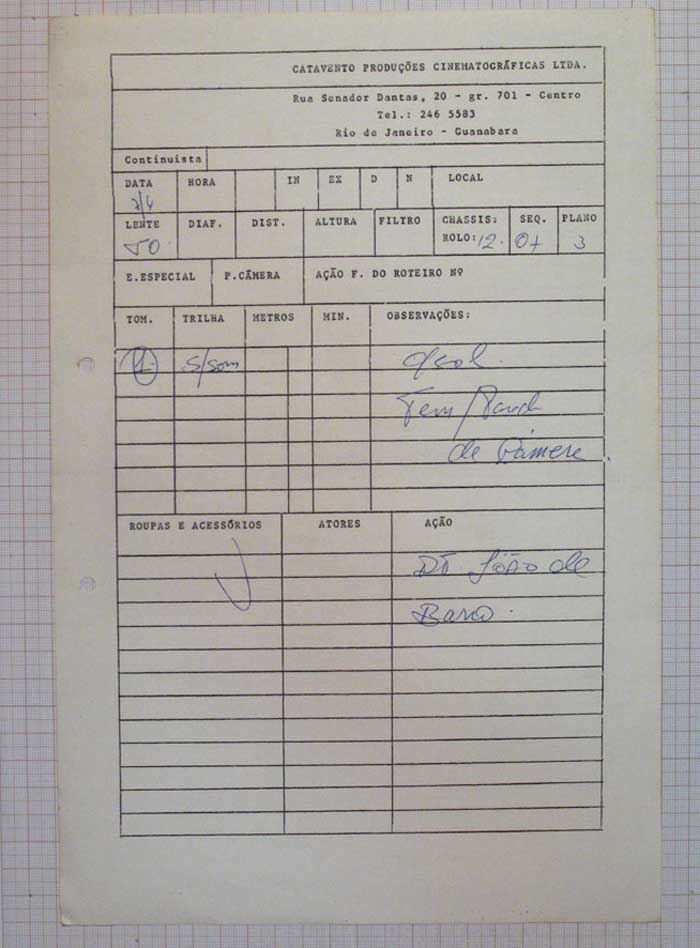 CATAVENTO PRODUÇÕES CINEMATOGRÁFICAS LTDA.
Rua Senador Dantas, 20 - gr. 701 - Centro
Tel.: 246 5583
Rio de Janeiro - Guanabara
Continuista
DATA HORA IN EX D N LOCAL
LENTE DIAF. DIST. ALTURA FILTRO CHASSIS: SEQ. PLANO
50 ROLO: 12. 3
E.ESPECIAL P.CÂMERA AÇÃO F. DO ROTEIRO Nº
TOM. TRILHA METROS MIN. OBSERVAÇÕES:
1 s/som
Tem
de Câmera.
ROUPAS E ACESSÓRIOS ATORES AÇÃO
DT João de
Barro.